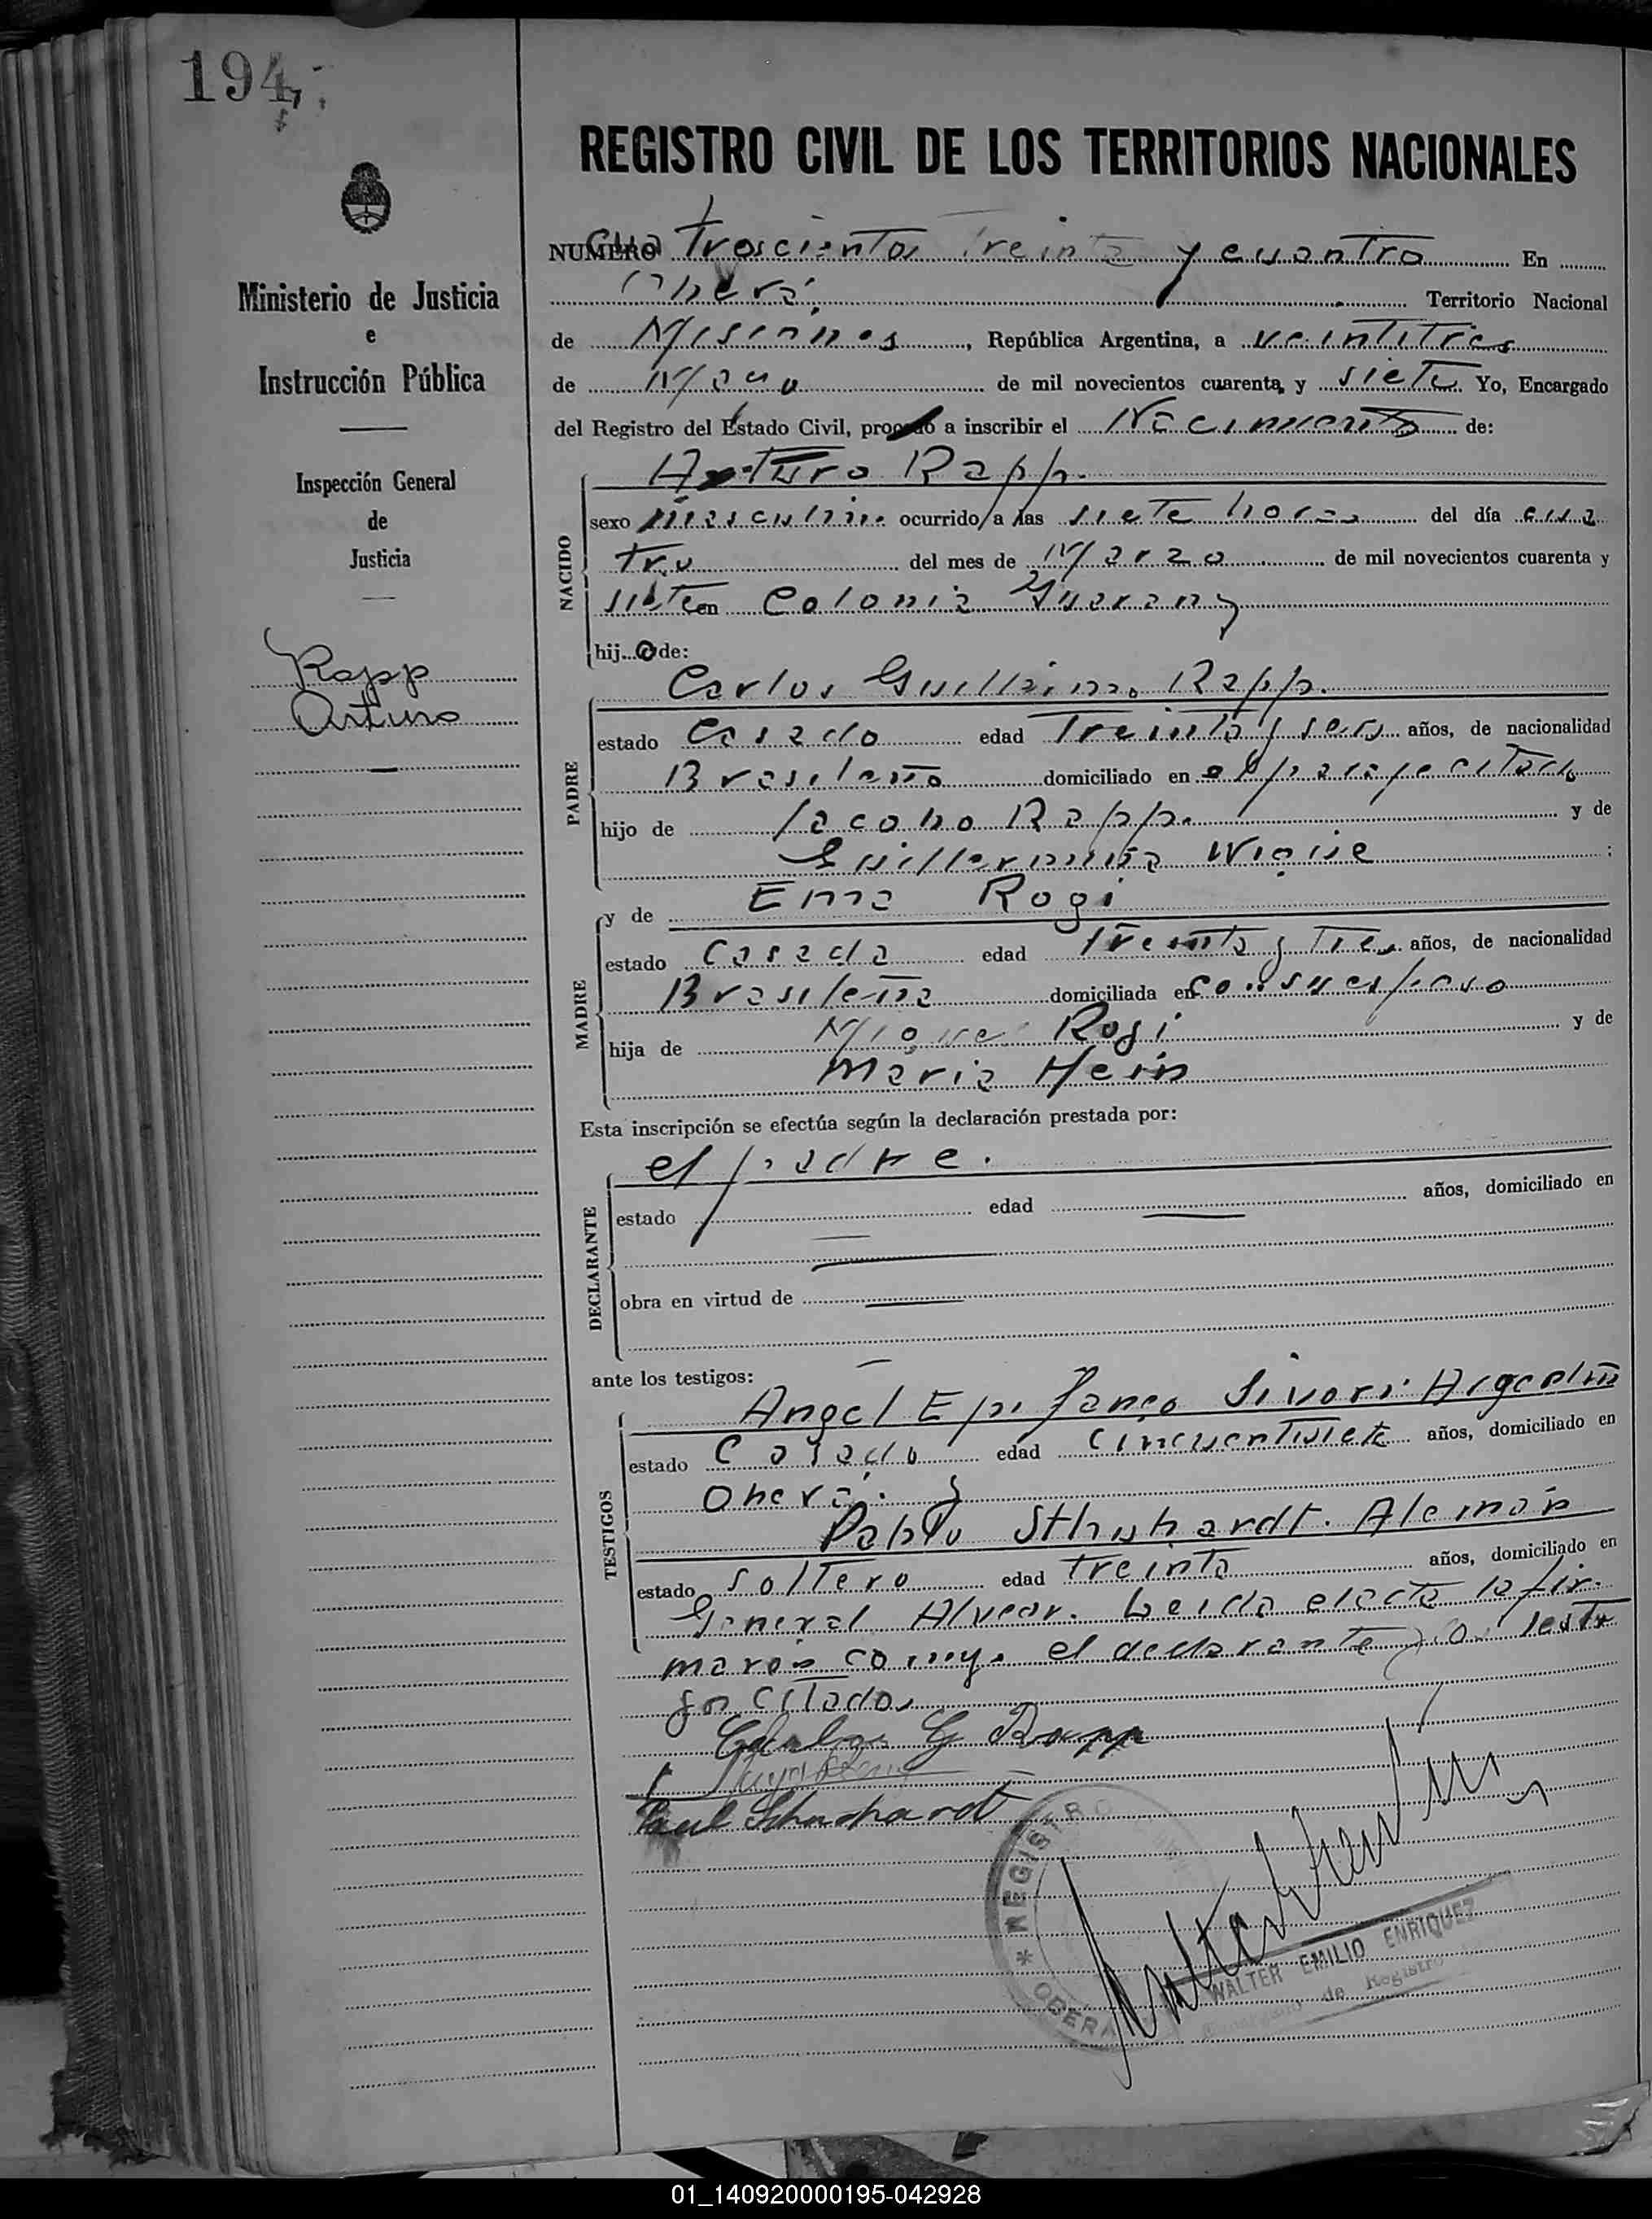 194
REGISTRO CIVIL DE LOS TERRITORIOS NACIONALES
Ministerio de Justicia
e
Instrucción Pública
Inspección General
de
Justicia
Rapp
Arturo
NUMERO Cuatroscientos treinta y cuantro En
Oberá, Territorio Nacional
de Misiones, República Argentina, a veintitres
de Mayo de mil novecientos cuarenta y siete Yo, Encargado
del Registro del Estado Civil, procedo a inscribir el Nacimiento de:
NACIDO
Arturo Rapp.
sexo masculino ocurrido a las siete horas del día cua
tro del mes de Marzo de mil novecientos cuarenta y
siete en Colonia Guarany
hijo de:
PADRE
Carlos Guillermo Rapp.
estado Casado edad Treinta y seis años, de nacionalidad
Brasileño domiciliado en el paraje citado
hijo de Jacobo Rapp. y de
Guillermina ;
MADRE
y de Ema Rogi
estado Casada edad treinta y tres años, de nacionalidad
Brasileña domiciliada en con su esposo
hija de Miguel Rogi y de
Maria Hein
Esta inscripción se efectúa según la declaración prestada por:
DECLARANTE
el padre.
estado edad años, domiciliado en
obra en virtud de
ante los testigos:
TESTIGOS
Angel Epifaneo Sivori Argentino
estado Casado edad cincuentisiete años, domiciliado en
Oberá. y
Pablo Alemán
estado Soltero edad treinta años, domiciliado en
General Alvear. Leida el acta la fir-
maron conmigo el declarante y los testi
gos citados
Carlos G Rapp
Paul Schuhardt
REGISTRO
* OBERA
WALTER EMILIO ENRIQUEZ
Encargado de Registro
01_140920000195-042928